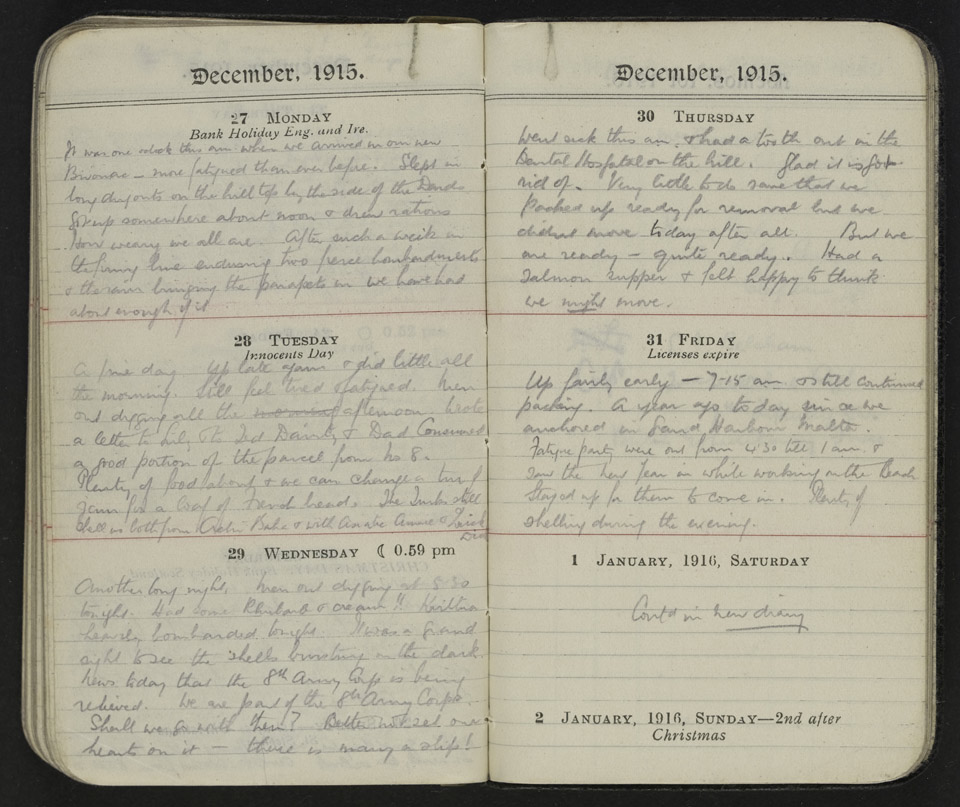 December, 1915.
27 MONDAY
Bank Holiday Eng. and Ire.
It was one o'clock this am when we arrived in our new
Bivouac – more fatigued than ever before. Slept in
long dugouts on the hill top by the side of the
Got up somewhere about noon & drew rations
How weary we all are. After such a week in
the firing line enduring two fierce bombardments
& the rain bringing the parapets in we have had
about enough of it
28 TUESDAY
Innocents Day
A fine day. Up late again & did little all
the morning. Still feel tired & fatigued. Men
out digging all the morning afternoon. Wrote
a letter to Lily, Ted & Dad Consumed
a good portion of the parcel from No 8.
Plenty of food about & we can change a tin of
Jam for a loaf of French bread. The Turks still
shell us both from & with Asiatic Annie &
29 WEDNESDAY ☾ 0.59 pm
Another long night. Men out digging at 5.30
tonight. Had some Rhubarb & cream!! Krithia
heavily bombarded tonight. It was a grand
sight to see the shells bursting in the dark.
News today that the 8th Army Corp is being
relieved. We are part of the 8th Army Corps.
Shall we go with them? Better not set our
hearts on it – there is many a slip!
December, 1915.
30 THURSDAY
Went sick this am. & had a tooth out in the
Dental Hospital on the hill. Glad it is got
rid of. Very little to do save that we
packed up ready for removal but we
didnt move today after all. But we
are ready – quite ready. Had a
salmon supper & felt happy to think
we might move.
31 FRIDAY
Licenses expire
Up fairly early – 7-15 am & still continued
packing. A year ago today since we
anchored in Grand Harbour Malta.
Fatigue party were out from 4.30 till 1 am &
saw the New Year in while working on the Beach
Stayed up for them to come in. Plenty of
shelling during the evening.
1 JANUARY, 1916, SATURDAY
Contd in new diary
2 JANUARY, 1916, SUNDAY—2nd after
Christmas